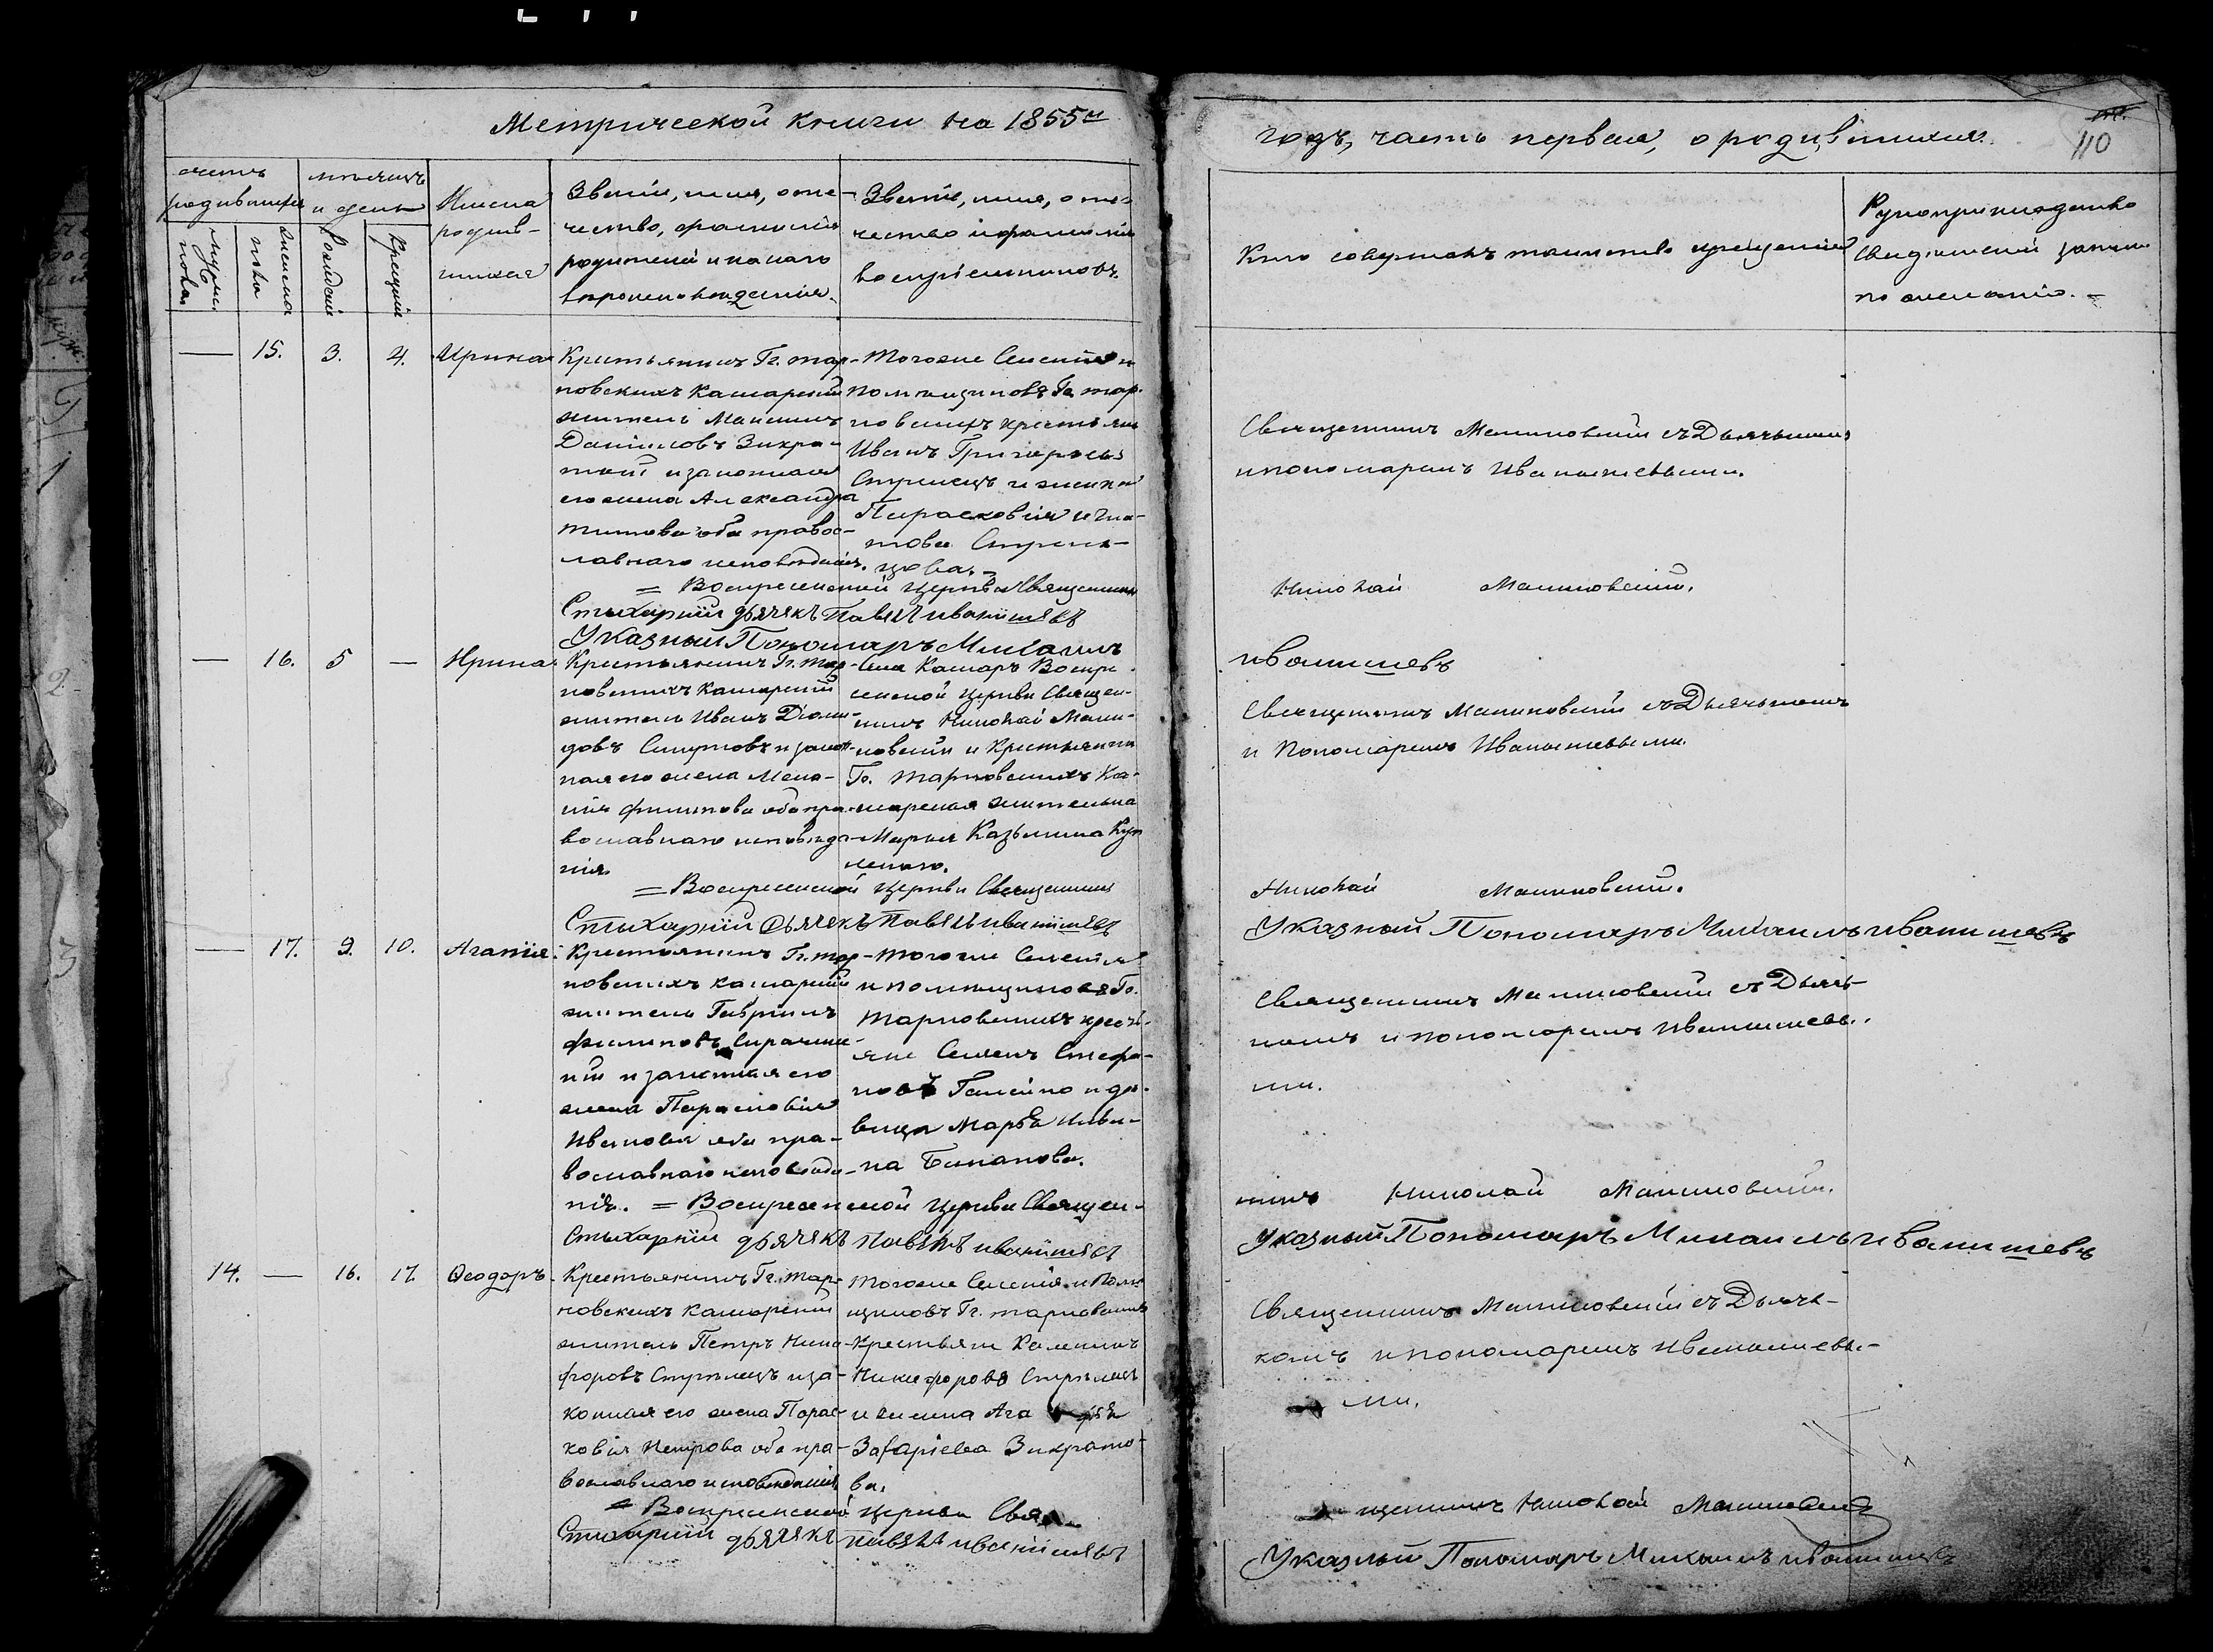 Метрической книги на 1855й
годъ, часть первая, о родившихся.
110
счетъ родившихся
мужеска пола
женска пола
мѣсяцъ и день
Рожденiй
Крещенiй
Имена родив-
шихся
Званiе, имя, оте-
чество, фамилiя
родителей и какого
вѣроисповѣданiя.
Званiе, имя, оте-
чество и фамилiя
воспрiемниковъ.
Кто совершалъ таинство крещенiя
Рукоприкладство
свидѣтелей записи
по желанiю.
— 15. 3. 4. Ирина
Крестьянинъ Гг. тар-
новскихъ Кашарскiй
житель Максимъ
Данiиловъ Зикра-
тый и законная
его жена Александра
Титова оба правос-
лавнаго исповѣданiя.
Тогоже Селенiя и
помѣщиковъ Гг. тар-
новскихъ крестьяне
Иванъ Григорьевъ
Стрилецъ и женка
Парасковiя Игна-
това Стриль-
цова.
Священникъ Малиновскiй съ Дьячькомъ
и пономаремъ Иванишевыми.
= Воскресенской Церкви Священникъ
Николай Малиновскiй.
Стыхарнiй дьячекъ Павелъ иванiшевъ
Указный Пономарь Михаилъ
иванишевъ
— 16. 5 — Ирина
Крестьянинъ Гг. тар-
новскихъ Кашарскiй
житель Иванъ Дiоми-
довъ и закон-
ная его жена Мела-
нiя Филипова оба пра-
вославнаго исповѣда-
нiя.
Села Кашаръ Воскре-
сенской Церкви Священ-
никъ Николай Мали-
новскiй и Крестьянка
Гг. Тарновскихъ Ка-
шарская жителька
Марья Казьмина
Священникъ Малиновскiй съ Дьячькомъ
и Пономаремъ Иванишевыми.
= Воскресенской Церкви Священникъ
Николай Малиновскiй.
Стыхарнiй Дьячекъ Павелъ иванiшевъ
Указный Пономарь Михаилъ иванишевъ
— 17. 9. 10. Агапiя.
Крестьянинъ Гг. тар-
новскихъ кашарскiй
житель Гаврiилъ
Филиповъ
и законная его
жена Параскoвiя
Иванова оба пра-
вославнаго исповѣда-
нiя.
Тогоже Селенiя
и помѣщиковъ Гг.
Тарновскихъ кресть-
яне Семенъ Стефа-
новъ и дѣ-
вица Марѳа Ильи-
на
Священникъ Малиновскiй съ Дьячь-
комъ и пономаремъ Иванишевы-
ми.
= Воскресенской Церкви Священ-
никъ Николай Малиновскiй.
Стыхарнiй дьячекъ Павелъ иванiшевъ
Указный Пономарь Михаилъ иванишевъ
14. — 16. 17. Ѳеодоръ.
Крестьянинъ Гг. Тар-
новскихъ кашарскiй
житель Петръ Ники-
форовъ Стрилецъ и за-
конная его жена Парас-
ковiя Петрова оба пра-
вославнаго исповѣданiя.
Тогоже Селенiя и Помѣ-
щиковъ Гг. тарновскихъ
Крестьяне Калинникъ
Никифоровъ Стрилецъ
и женка
Захарiева Зикрато-
ва.
Священникъ Малиновскiй съ Дьячь-
комъ и пономаремъ Иванишевы-
ми.
= Воскресенской Церкви Свя-
щенникъ Николай Малиновскiй
Стихарнiй дьячекъ Павелъ иванiшевъ
Указный Пономарь Михаилъ иванишевъ